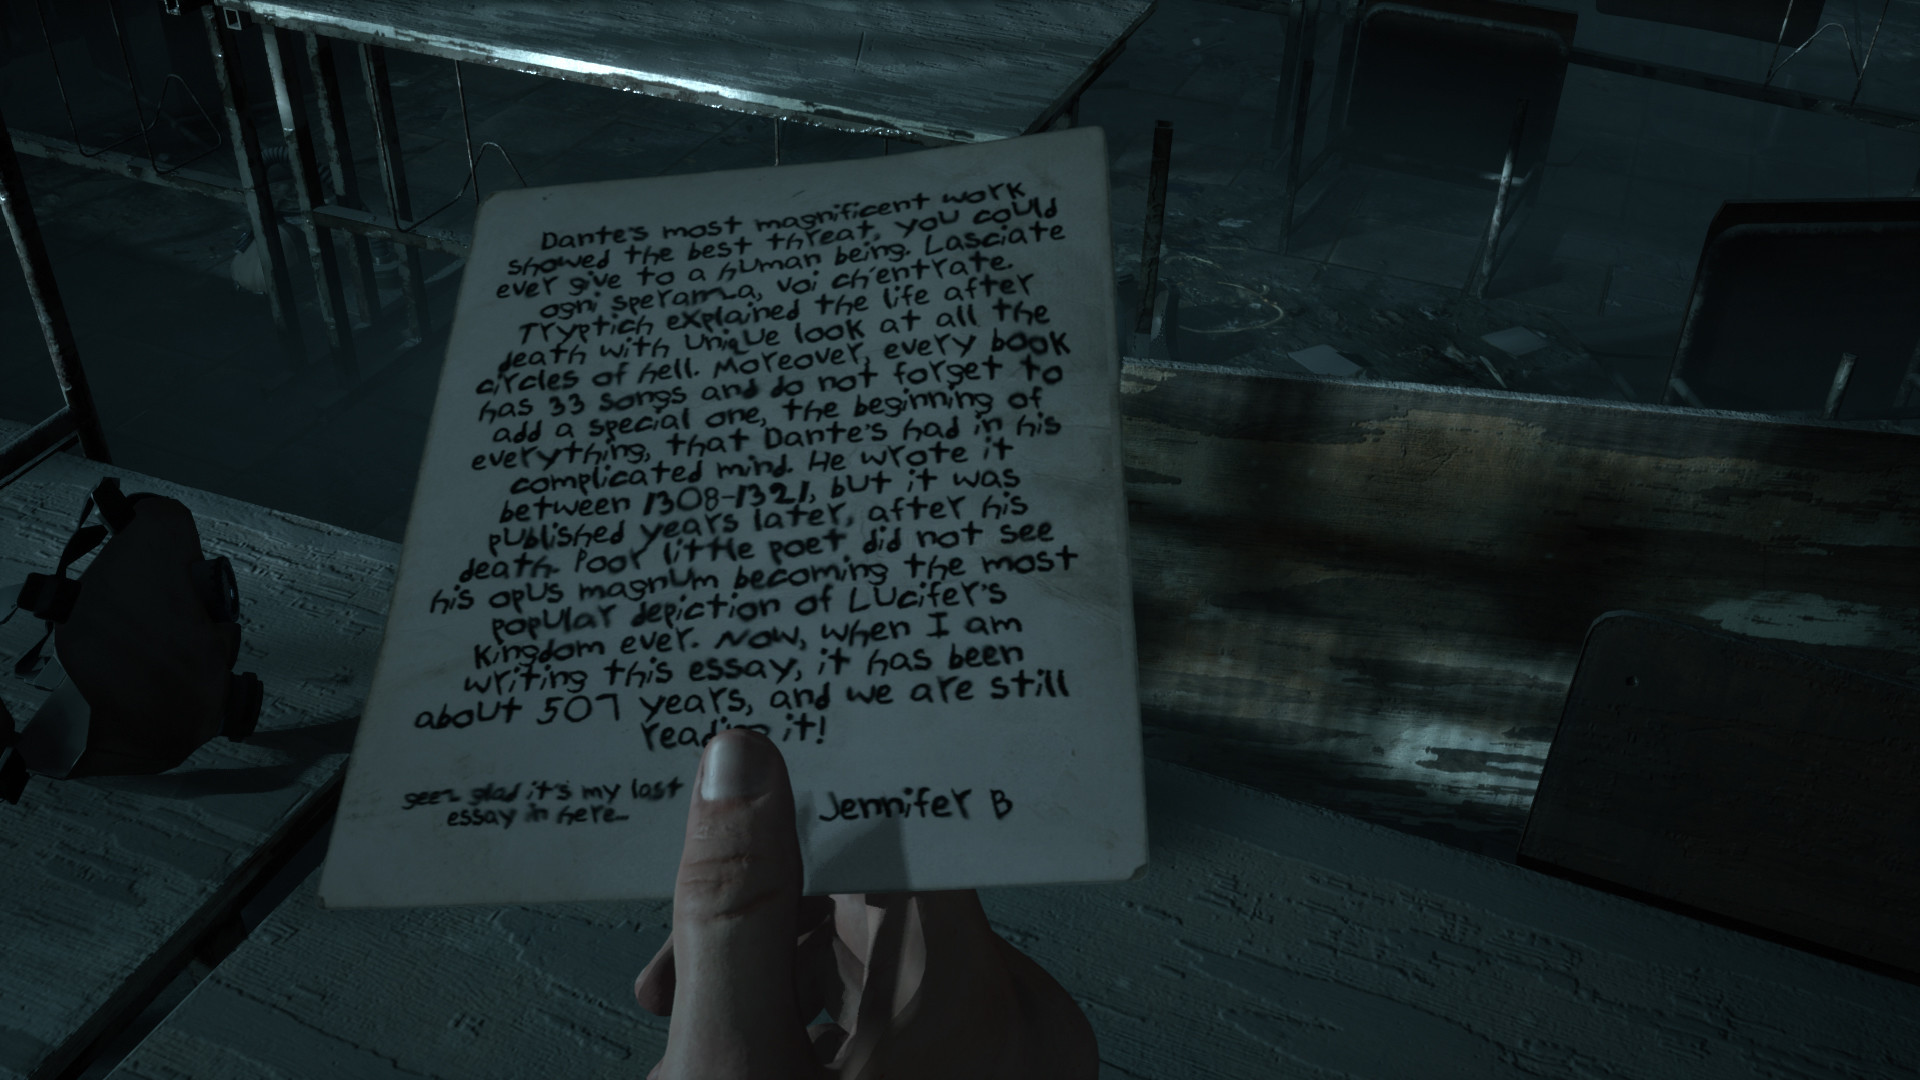 Dante's most magnificent work
showed the best threat, you could
ever give to a human being. Lasciate
ogni speranza, voi ch'entrate.
Tryptich explained the life after
death with unique look at all the
circles of hell. Moreover, every book
has 33 songs and do not forget to
add a special one, the beginning of
everything, that Dante's had in his
complicated mind. He wrote it
between 1308-1321, but it was
published years later, after his
death. Poor little poet did not see
his opus magnum becoming the most
popular depiction of Lucifer's
kingdom ever. Now, when I am
writing this essay, it has been
about 507 years, and we are still
it!
glad it's my last
essay in here...
Jennifer B